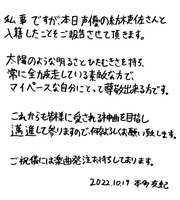 私事ですが、本日声優の紡木吏佐さんと
入籍したことをご報告させて頂きます。
太陽のような明るさとひたむきさを持ち、
常に全力疾走している素敵な方で、
マイペースな自分にとって尊敬出来る方です。
これからも皆様に愛される計画を目指し
邁進して参りますので、何卒よろしくお願い致します。
ご祝儀には楽曲発注お待ちしております。
2022.10.19 本多友紀